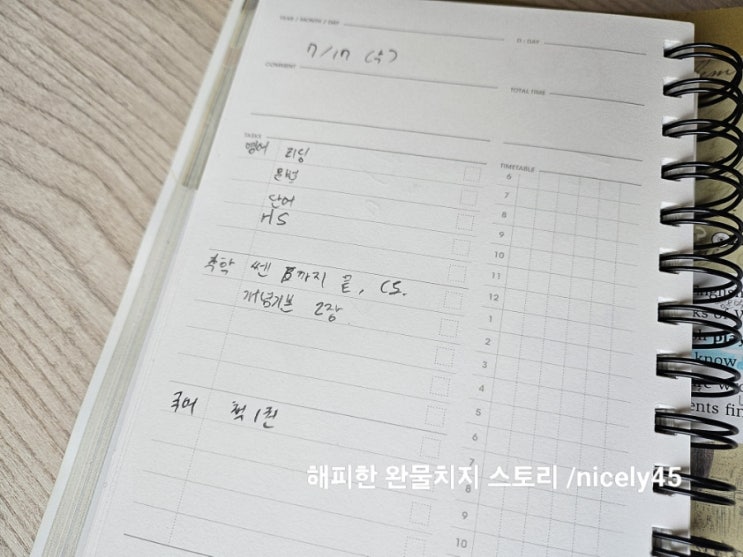 YEAR / MONTH / DAY
D-DAY
7/17 (수)
COMMENT
TOTAL TIME
TASKS
TIMETABLE
영어 리딩
문법
단어
HS
수학 쎈 B까지 끝, CS.
개념기본 2장
국어 책 1권
6
7
8
9
10
11
12
1
2
3
4
5
6
7
8
9
10
해피한 완물치지 스토리 /nicely45
know
ents fin